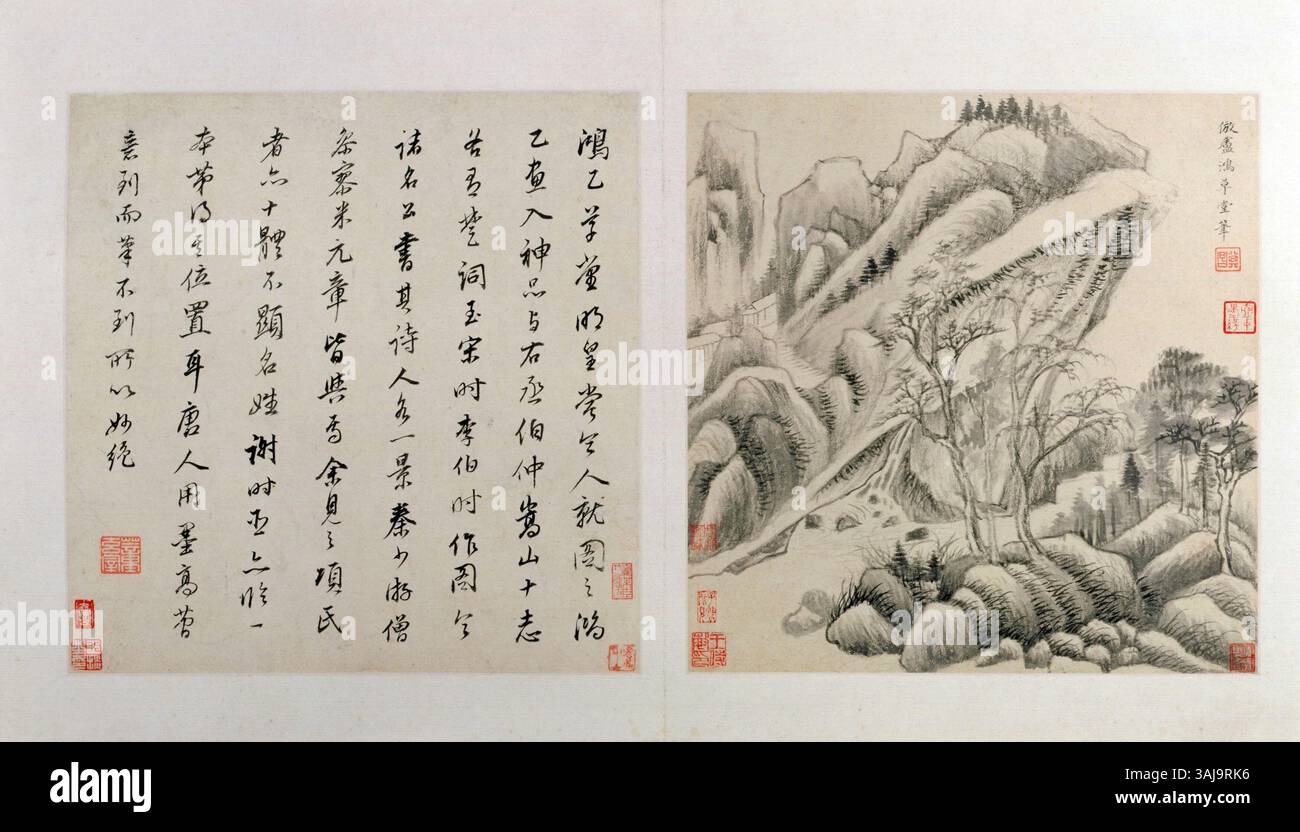 倣盧鴻草堂筆
鴻乙草堂明皇嘗令人就圖之鴻
乙畫入神品与右丞伯仲嵩山十志
各有楚詞至宋时李伯时作圖令
諸名公書其詩人各一景秦少游僧
參寥米元章皆與焉余見之項氏
者亦十體不顯名姓謝时臣亦临一
本第得其位置耳唐人用墨高
意到而筆不到所以妙絶
alamy
Image ID: 3AJ9RK6
www.alamy.com